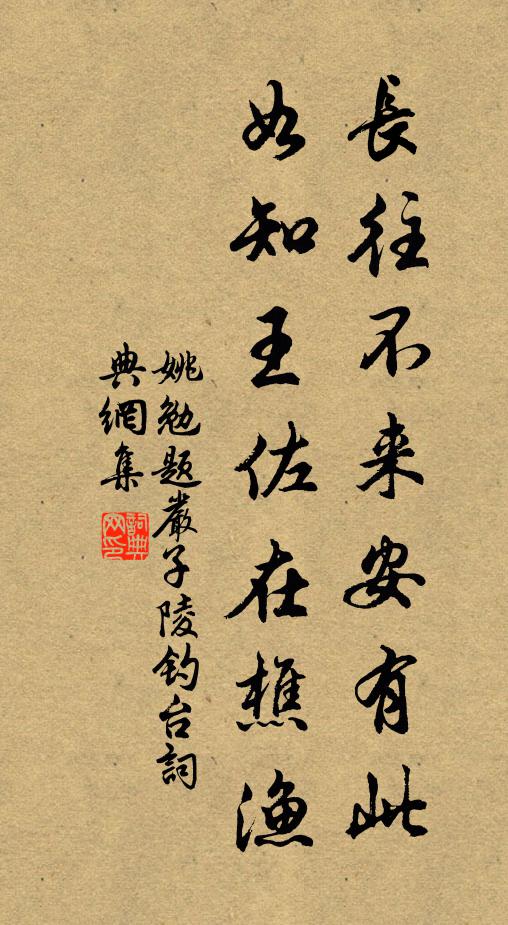 長往不来安有此
如知王佐在樵漁
姚勉題嚴子陵钓台詞
典網集
詞典
网印